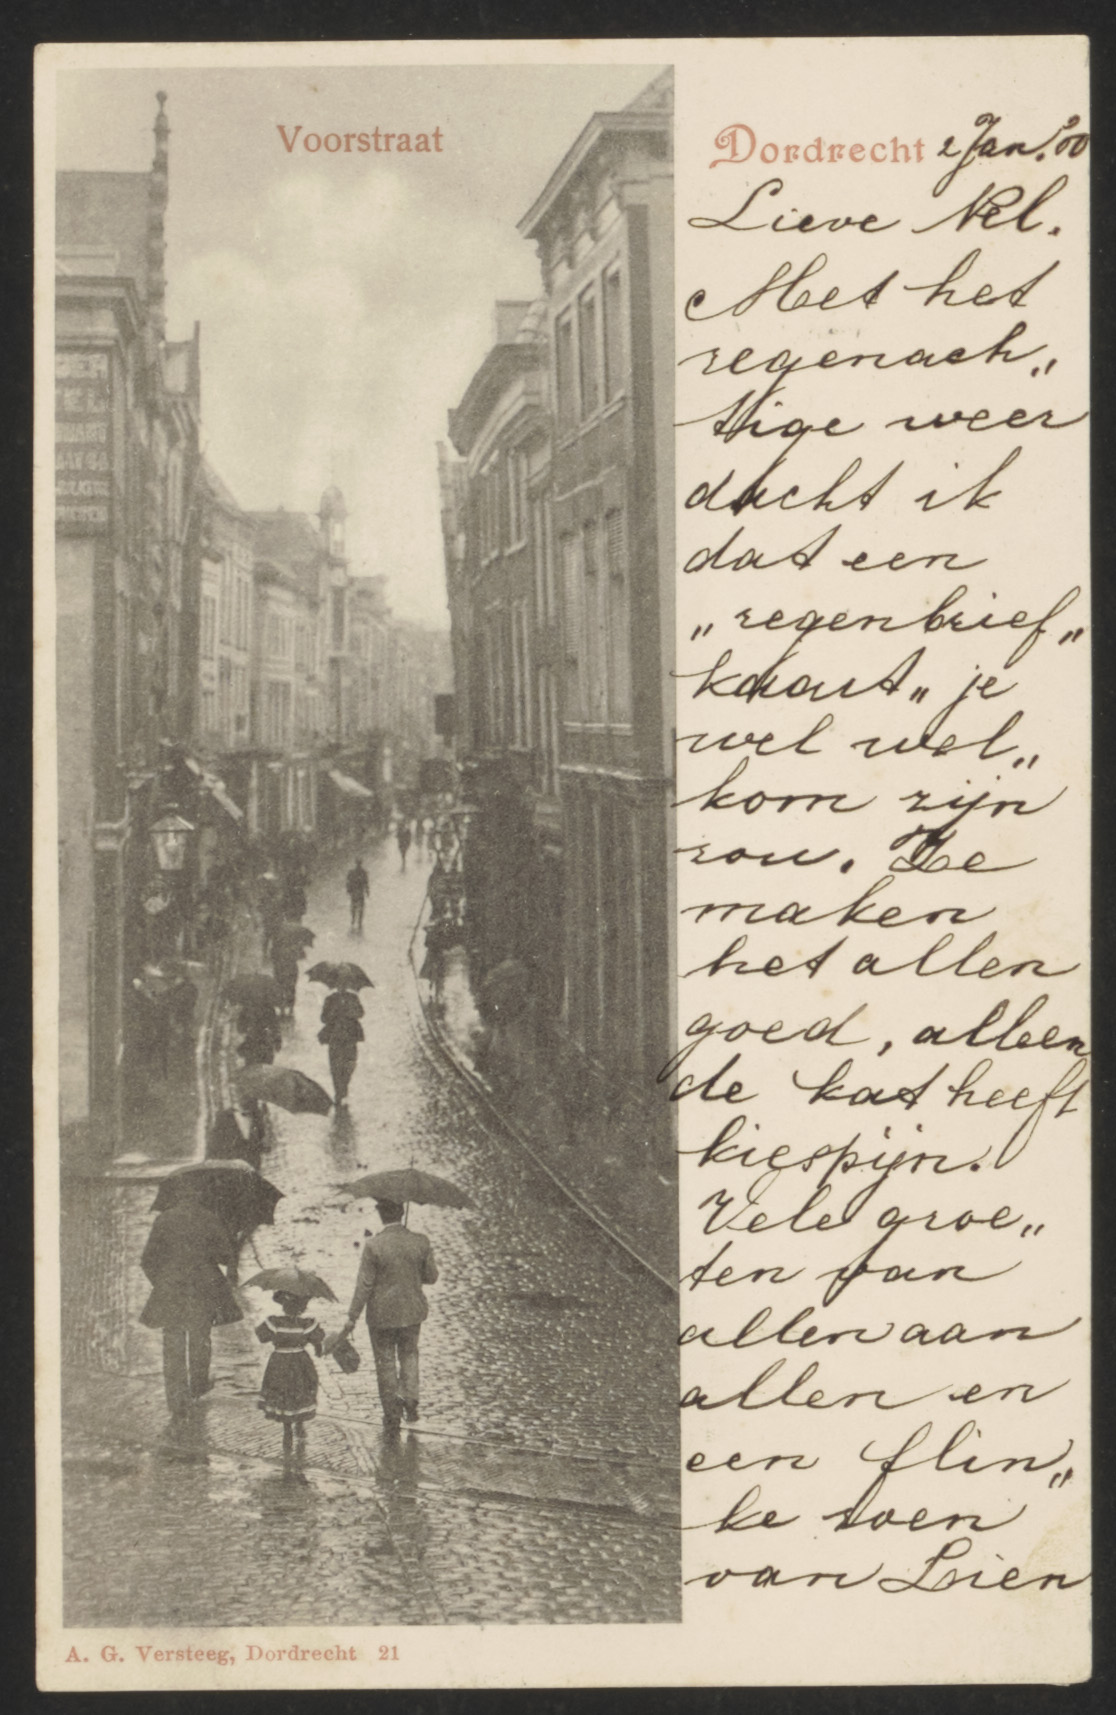 Voorstraat
Dordrecht 2 Jan. '00
Lieve Nel.
Met het
regenach„
tige weer
dacht ik
dat een
„regenbrief„
kaart„ je
wel wel„
kom zijn
zou. We
maken
het allen
goed, alleen
de kat heeft
kiespijn.
Vele groe„
ten van
allen aan
allen en
een flin„
ke zoen
van Lien
A. G. Versteeg, Dordrecht 21